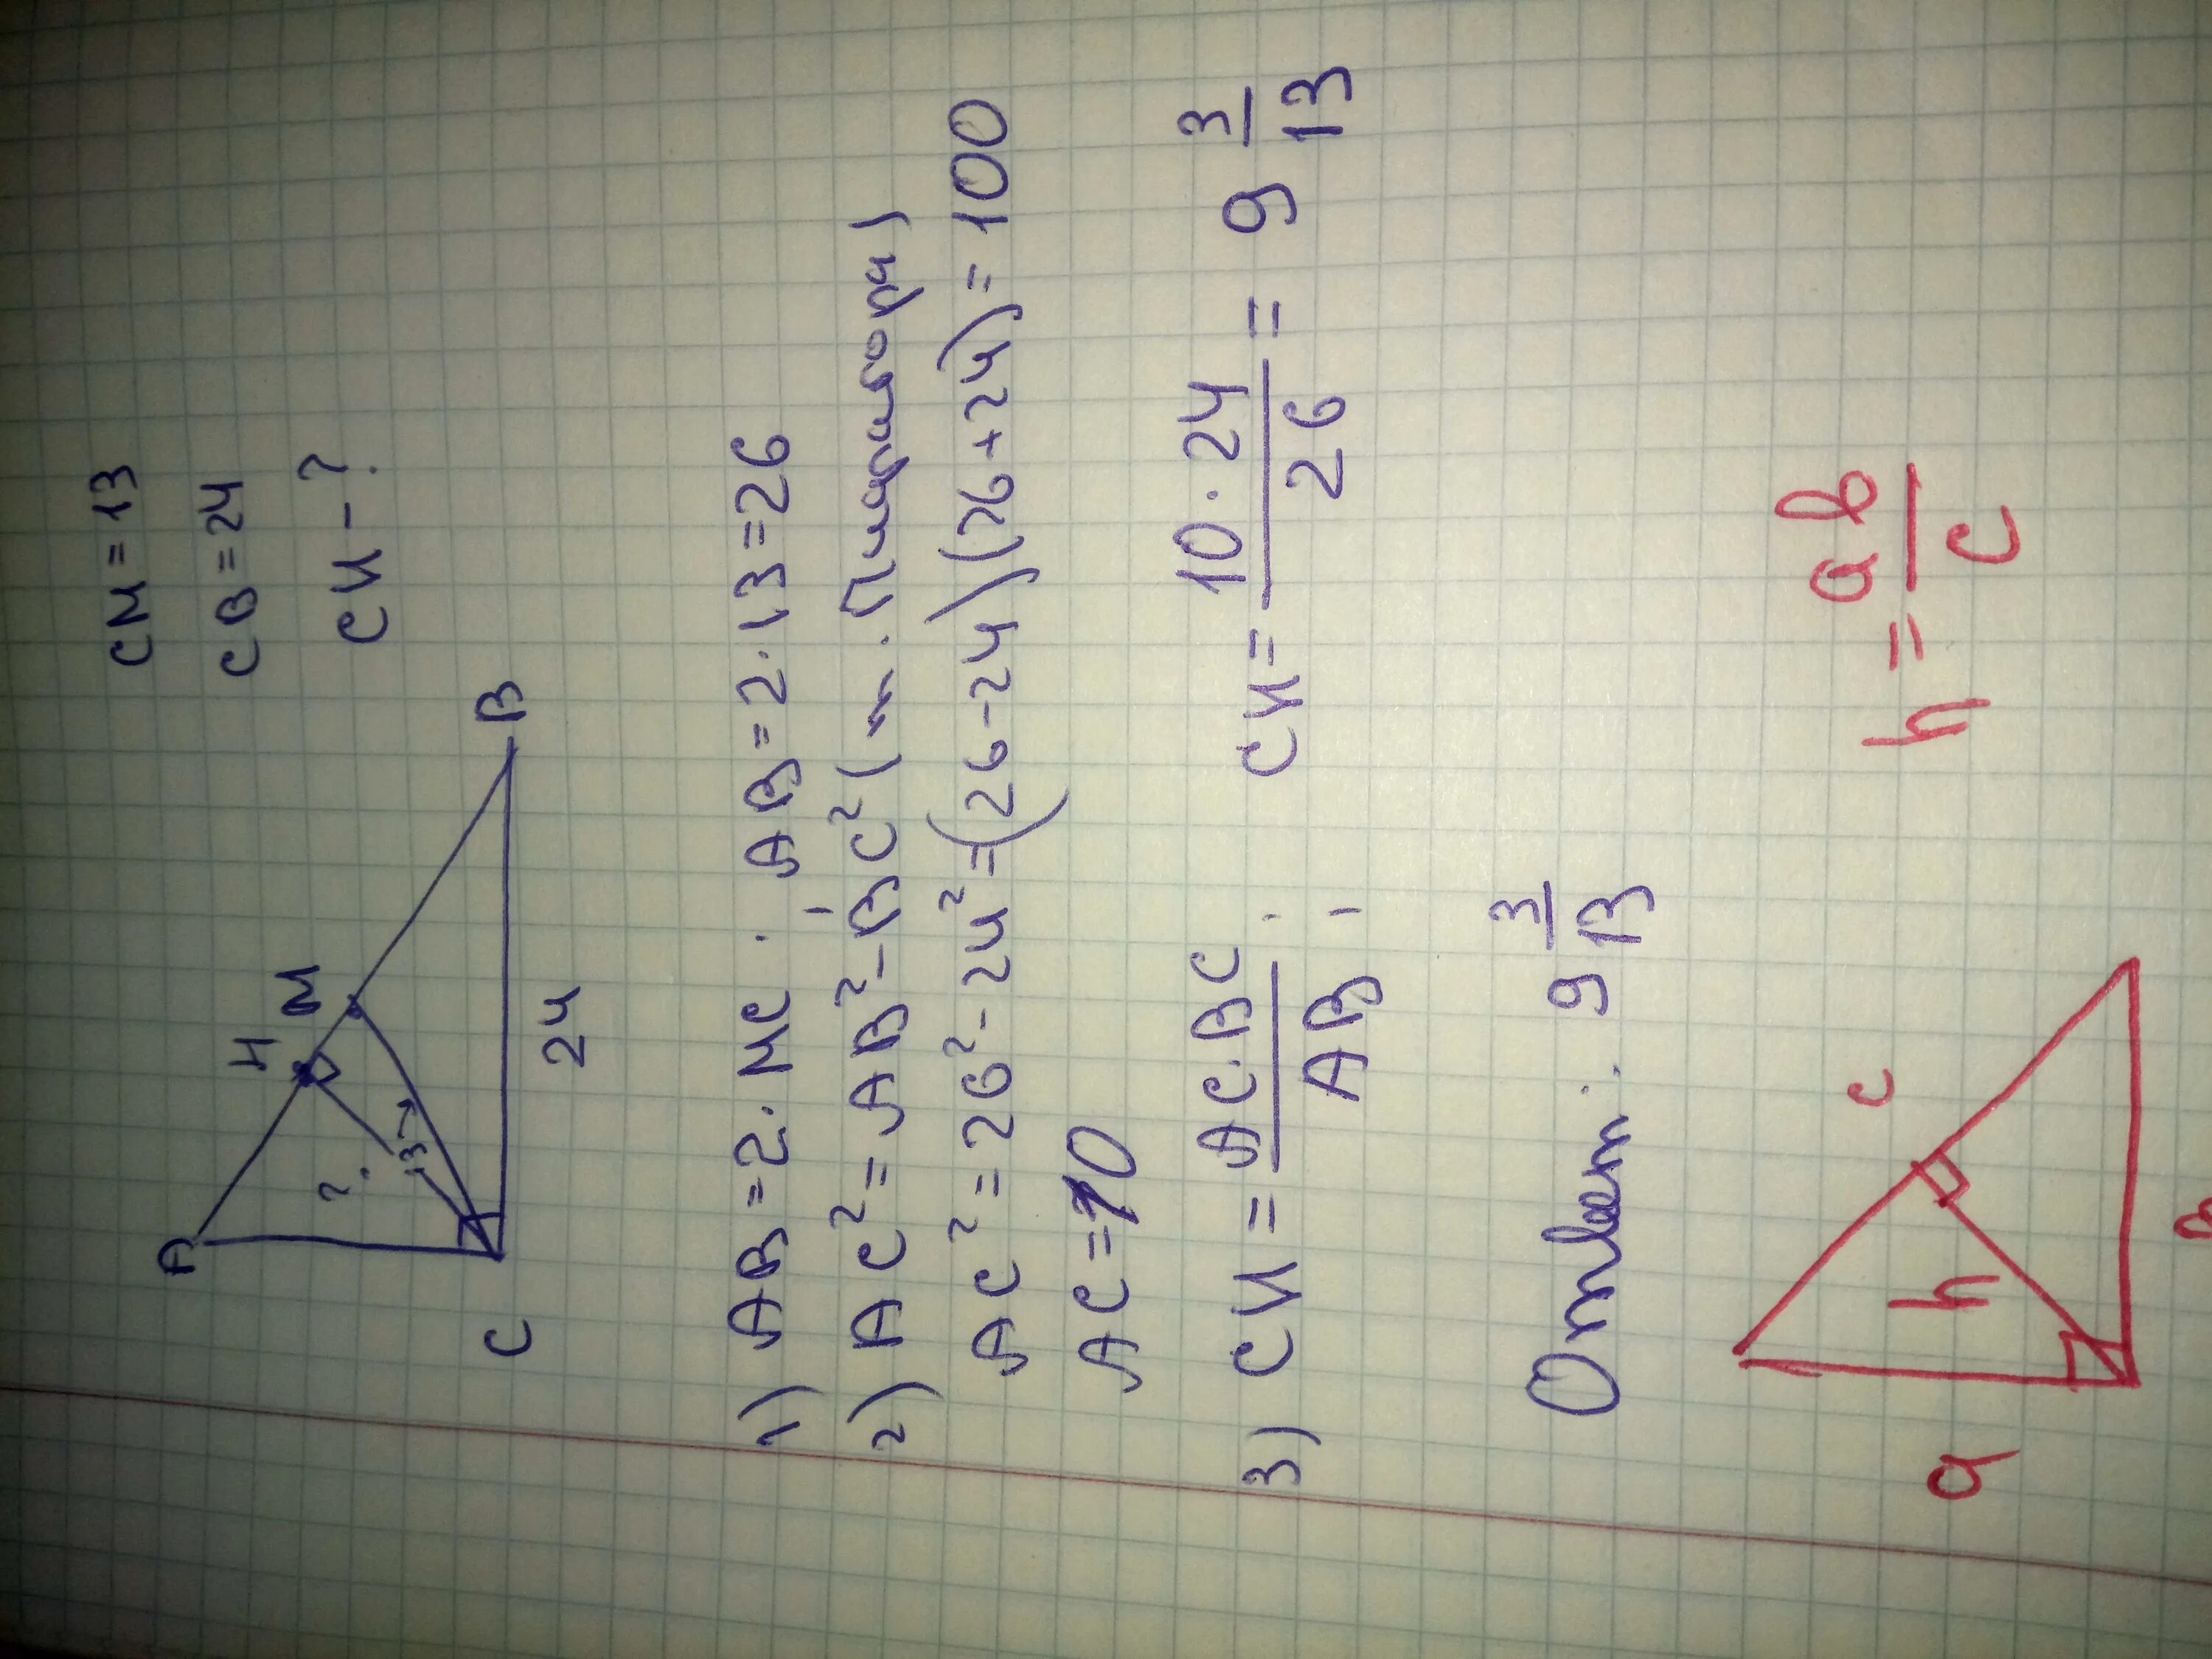 CM = 13
CB = 24
CH - ?
A
H
M
B
C
?
13
24
1) AB = 2 · MC ; AB = 2 · 13 = 26
2) AC² = AB² - BC² (т. Пифагора)
AC² = 26² - 24² = (26 - 24)(26 + 24) = 100
AC = 10
3) CH = AC · BC / AB ; CH = 10 · 24 / 26 = 9 3/13
Ответ: 9 3/13
a
h
c
в
h = aв / c